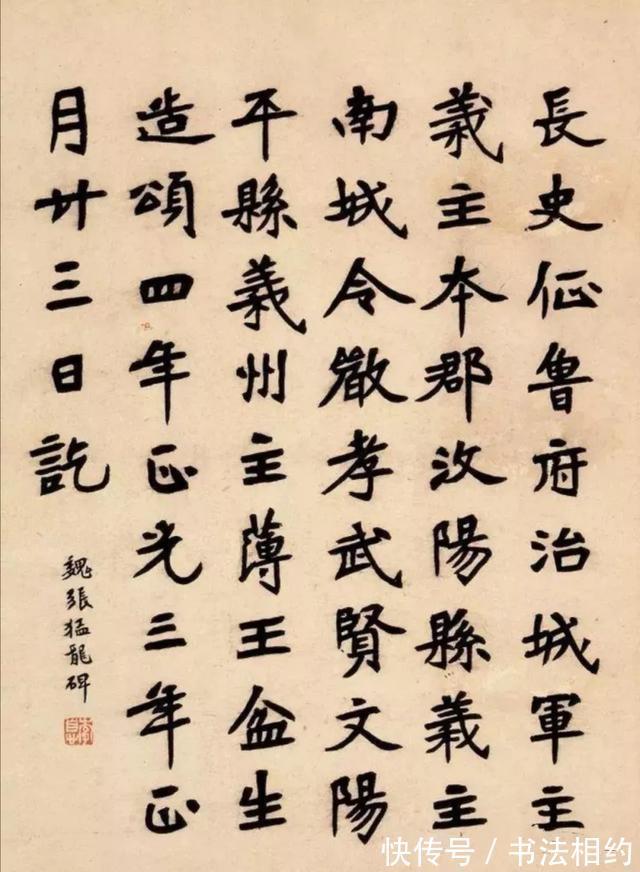 長史征魯府治城軍主
義主本郡汶陽縣義主
南城令嚴孝武賢文陽
平縣義州主薄王盆生
造頌四年正光三年正
月廿三日訖
魏張猛龍碑
快传号/书法相约